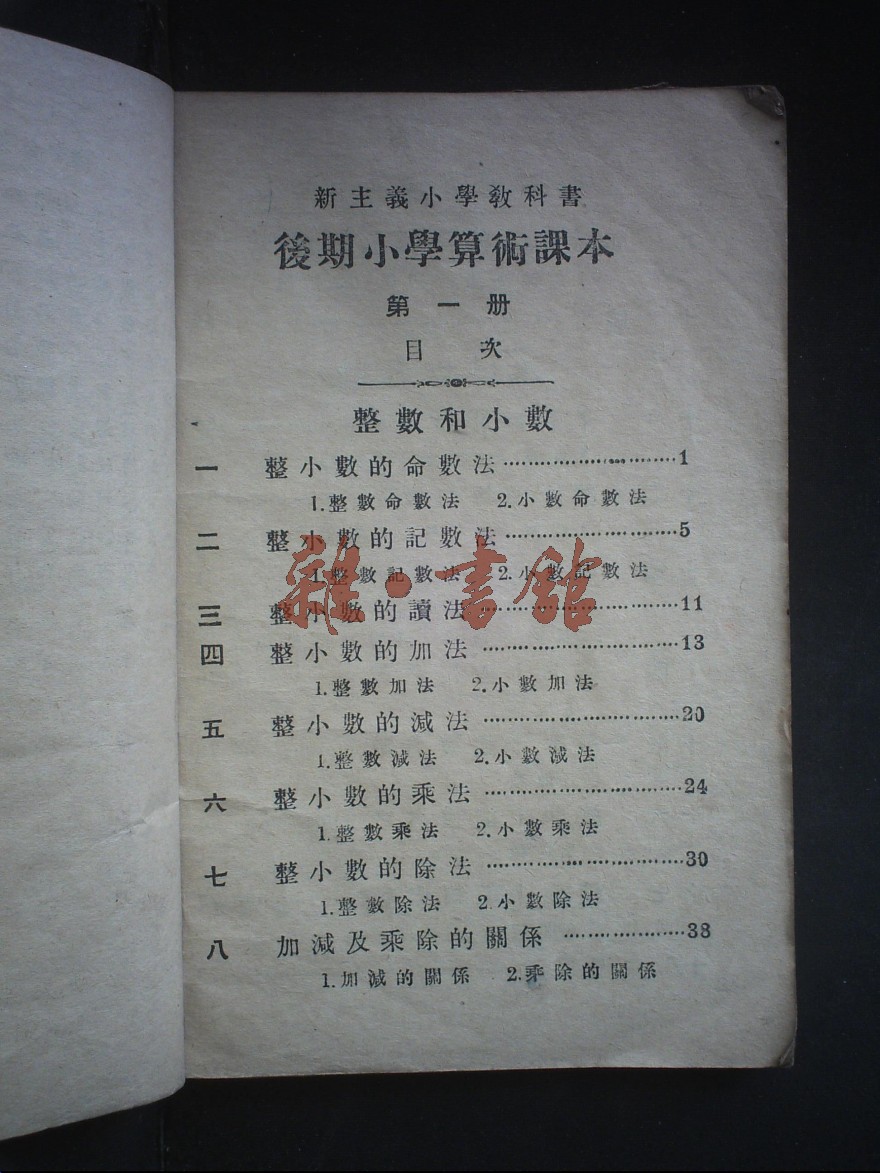 新主義小學教科書
後期小學算術課本
第一册
目次
整數和小數
一 整小數的命數法…………………………1
1.整數命數法 2.小數命數法
二 整小數的記數法…………………………5
1.整數記數法 2.小數記數法
三 整小數的讀法…………………………11
四 整小數的加法…………………………13
1.整數加法 2.小數加法
五 整小數的減法…………………………20
1.整數減法 2.小數減法
六 整小數的乘法…………………………24
1.整數乘法 2.小數乘法
七 整小數的除法…………………………30
1.整數除法 2.小數除法
八 加減及乘除的關係…………………38
1.加減的關係 2.乘除的關係
雜·書館